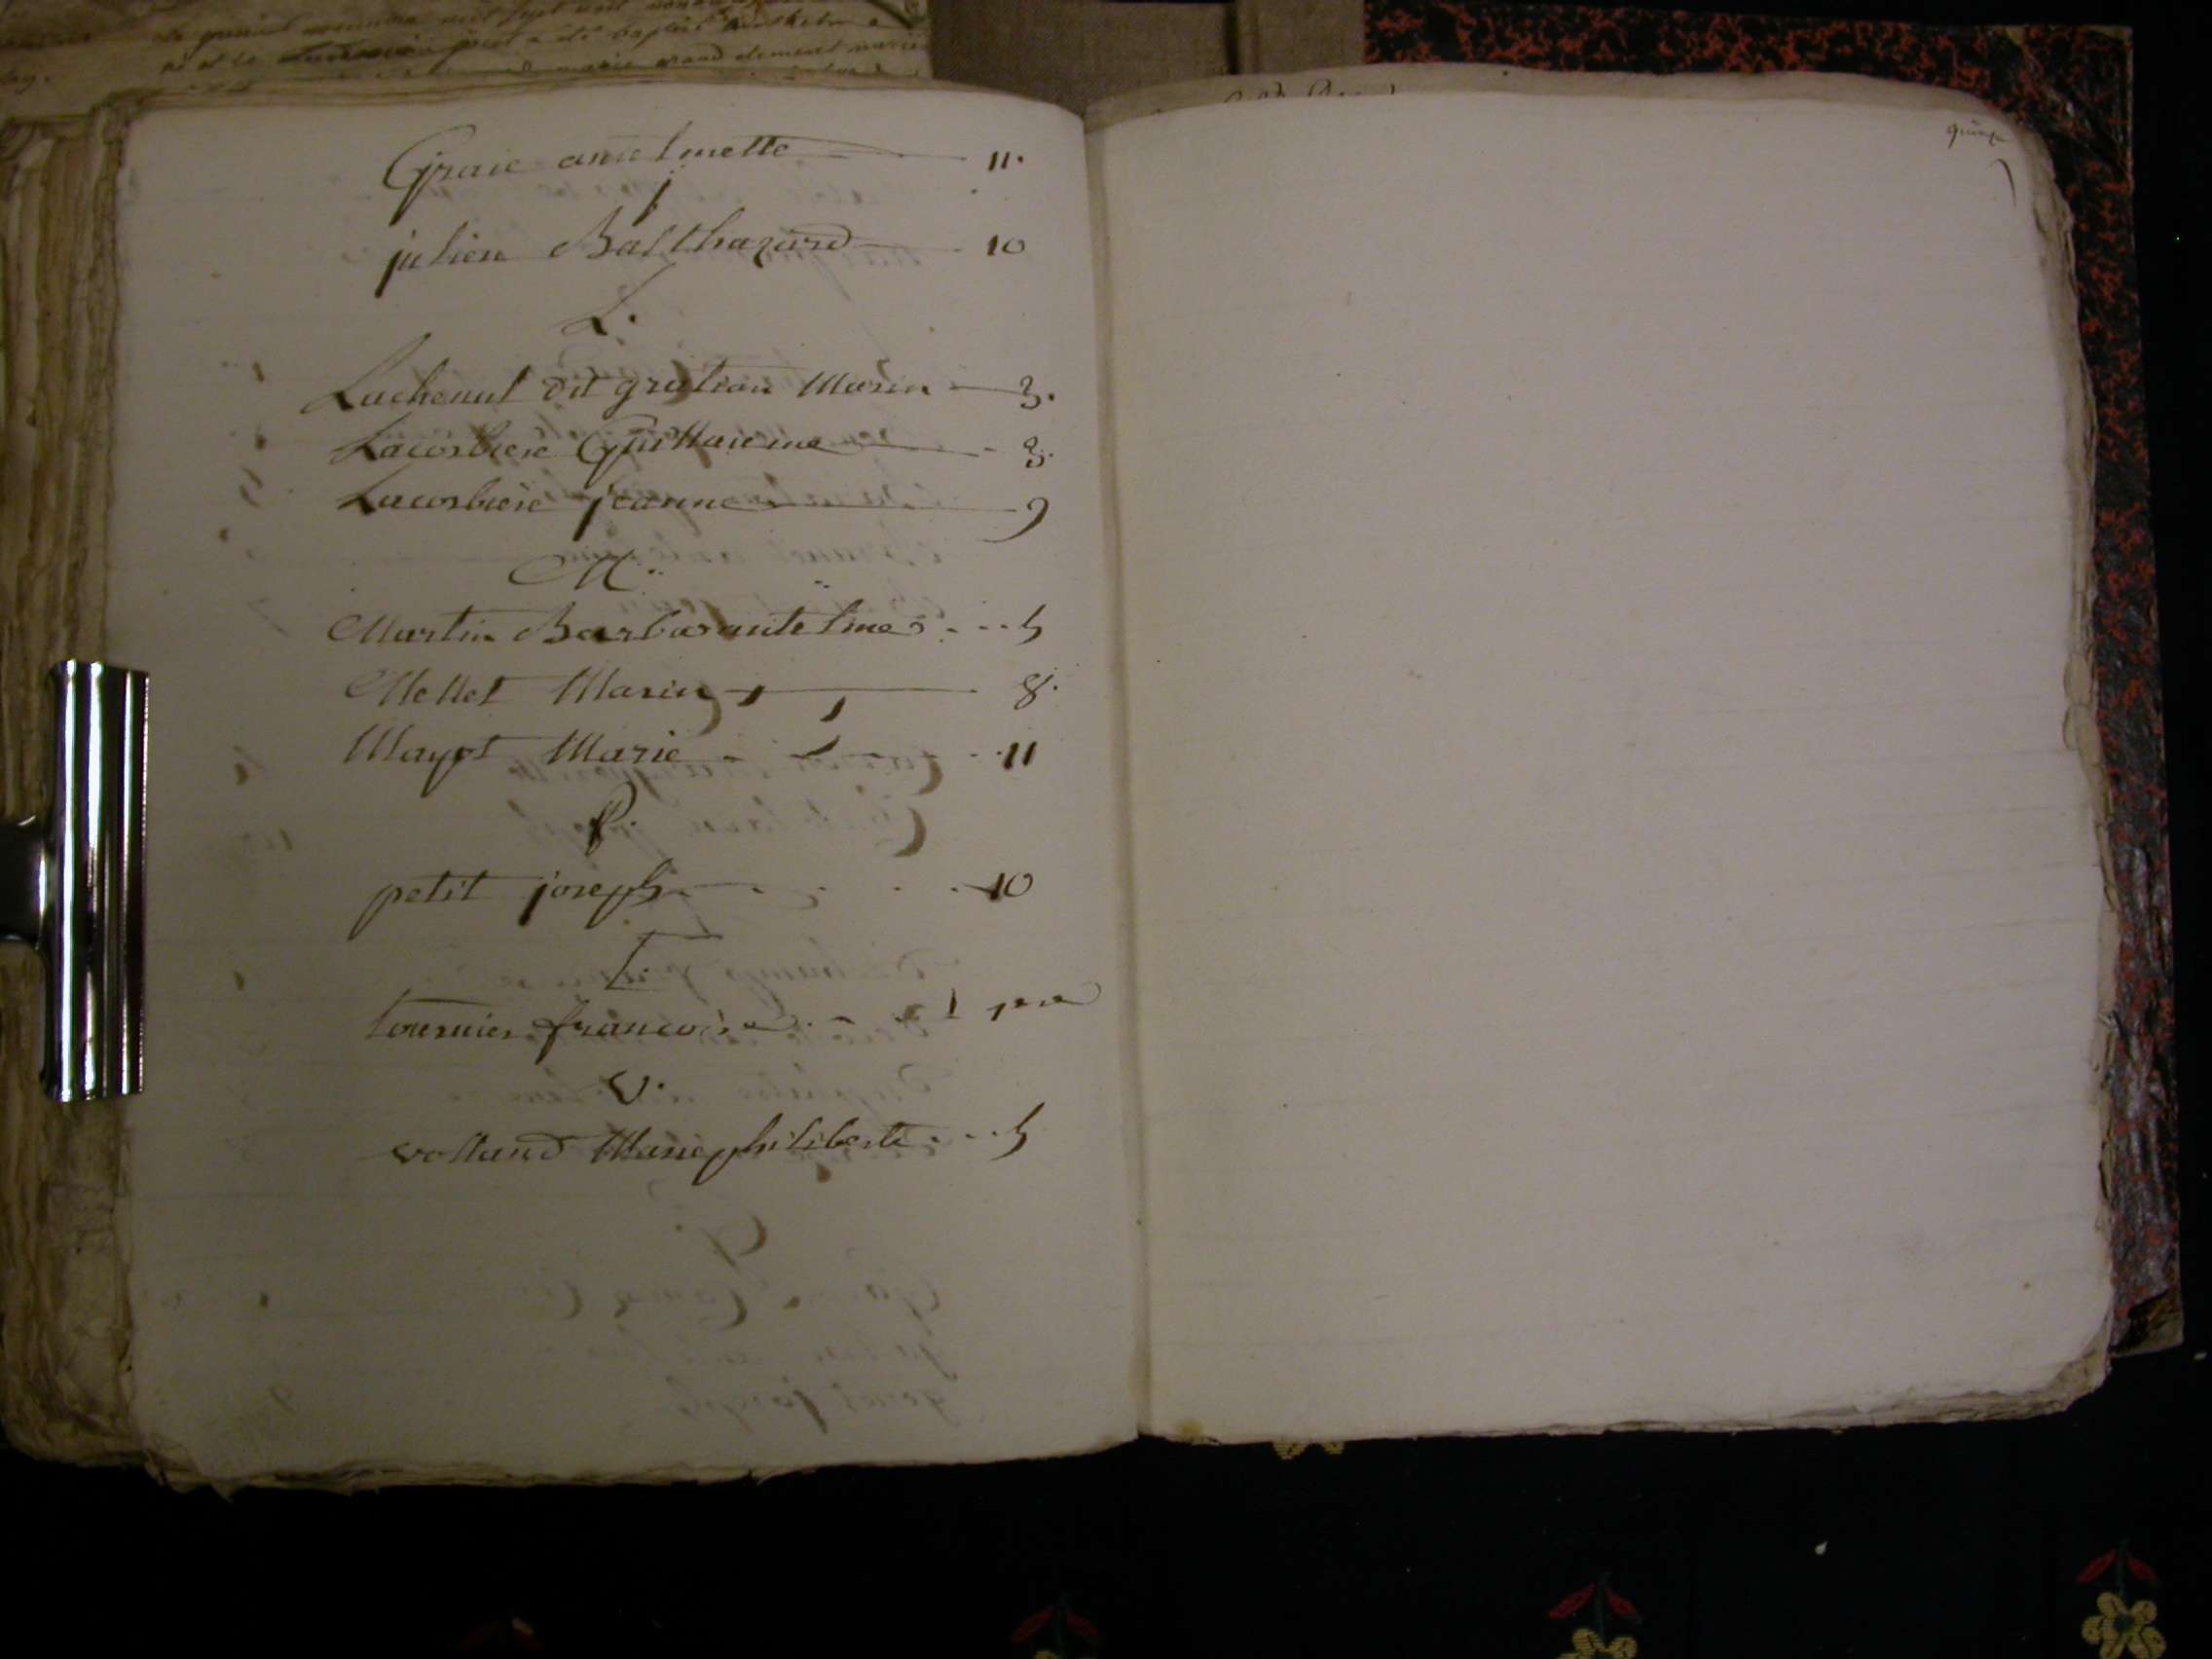 Graie antelmette 11.
J
julien Balthazard 10
L.
Lachenal dit gratian Marin 3.
Lacorbiere Guillaume 3.
Lacorbiere jeanne 9
M.
Martin Barbe antelme 5
Mellet Marin 8.
Mayot Marie 11
P.
petit joseph 10
T.
tournier francoise 1
V.
volland Marie philiberte 5
quinze